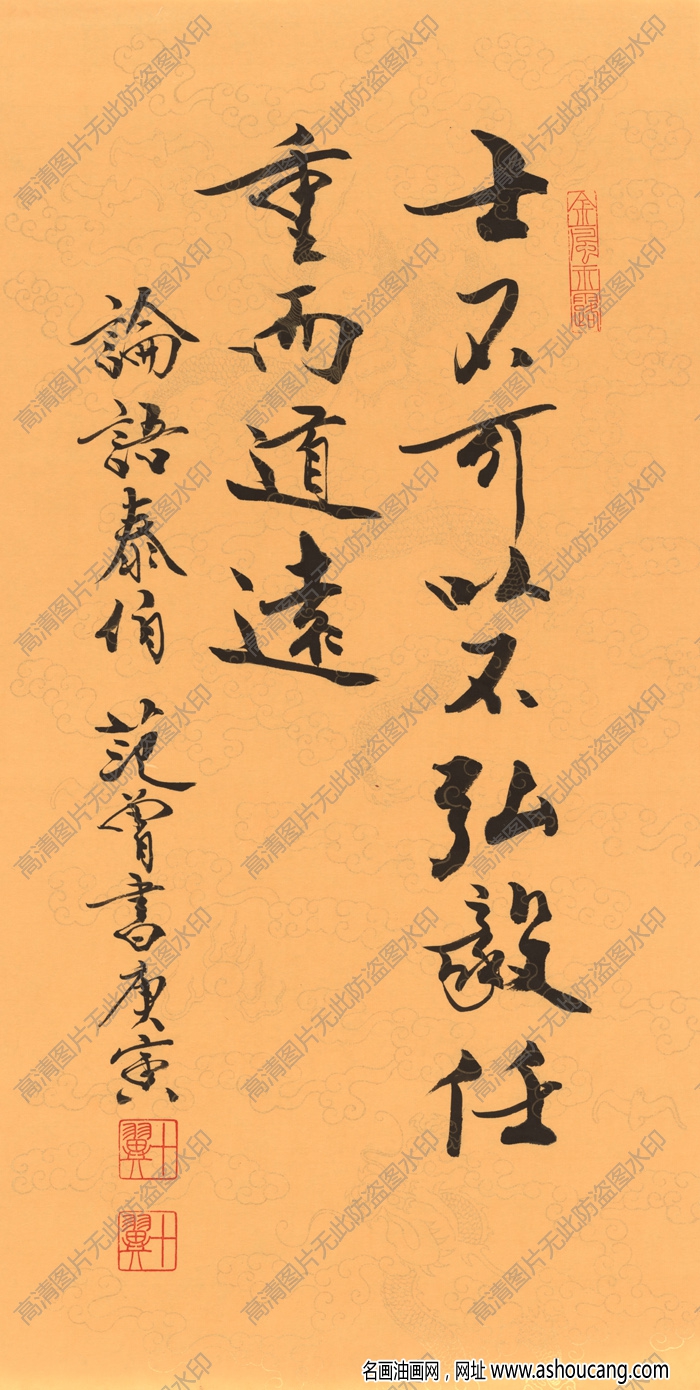 士不可以不弘毅任
重而道遠
論語泰伯 范曾書庚寅
十翼
十翼
金風玉露
高清图片无此防盗图水印
名画油画网，网址 www.ashoucang.com